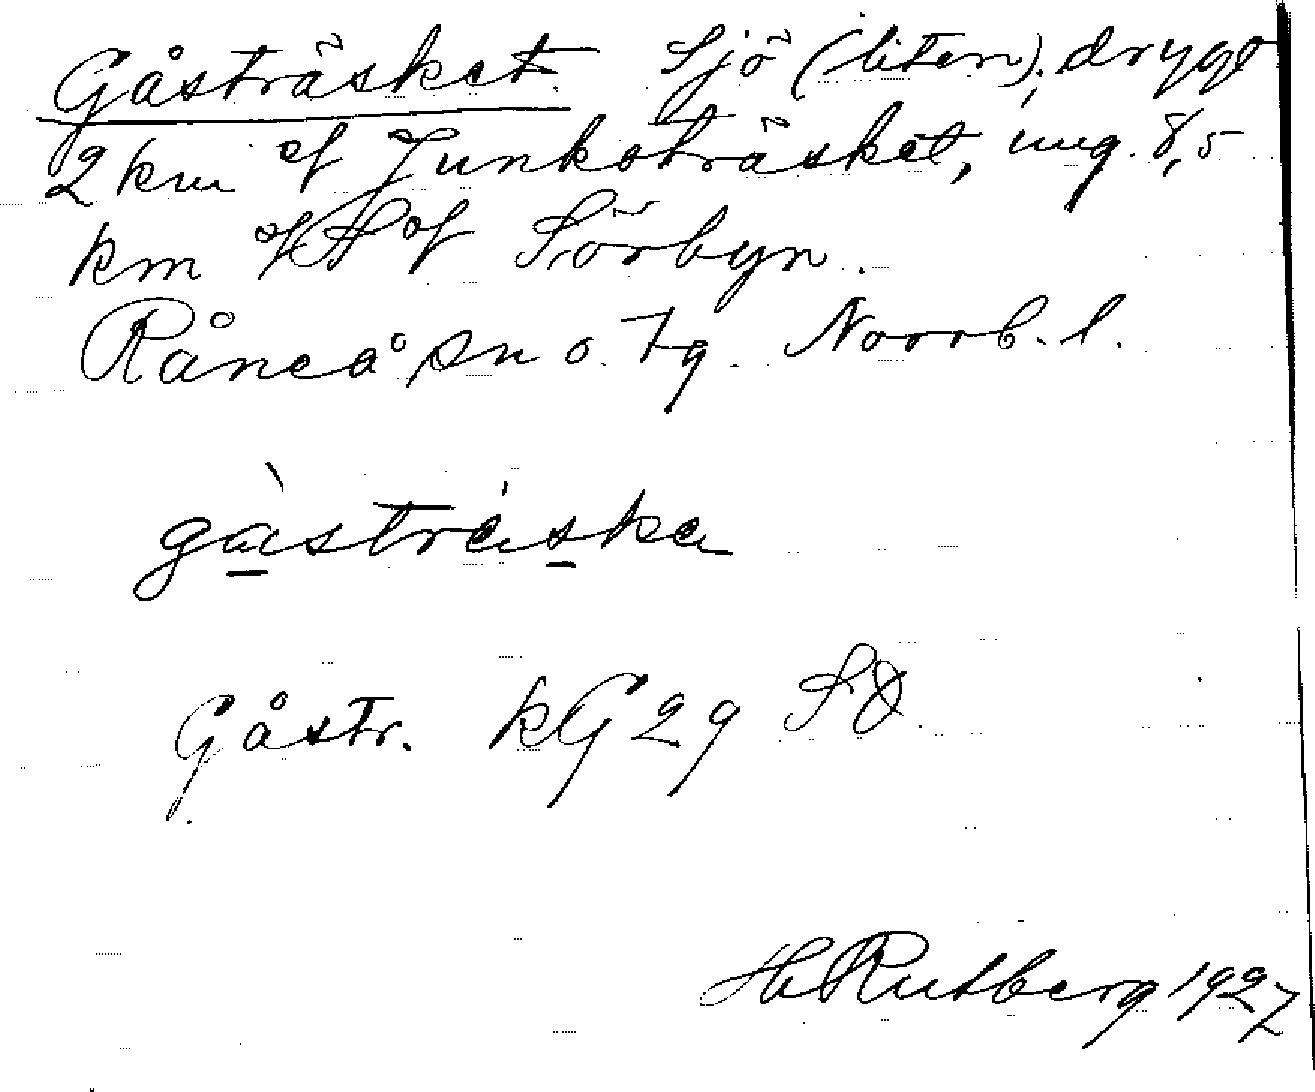 Gåsträsket Sjö (liten), drygt
2 km of Junkoträsket, ung. 8,5
km of Sörbyn.
Råneå sn o. tg Norrb. l.
gàsträska
Gåstr. kG 29 SO
H Rutberg 1927